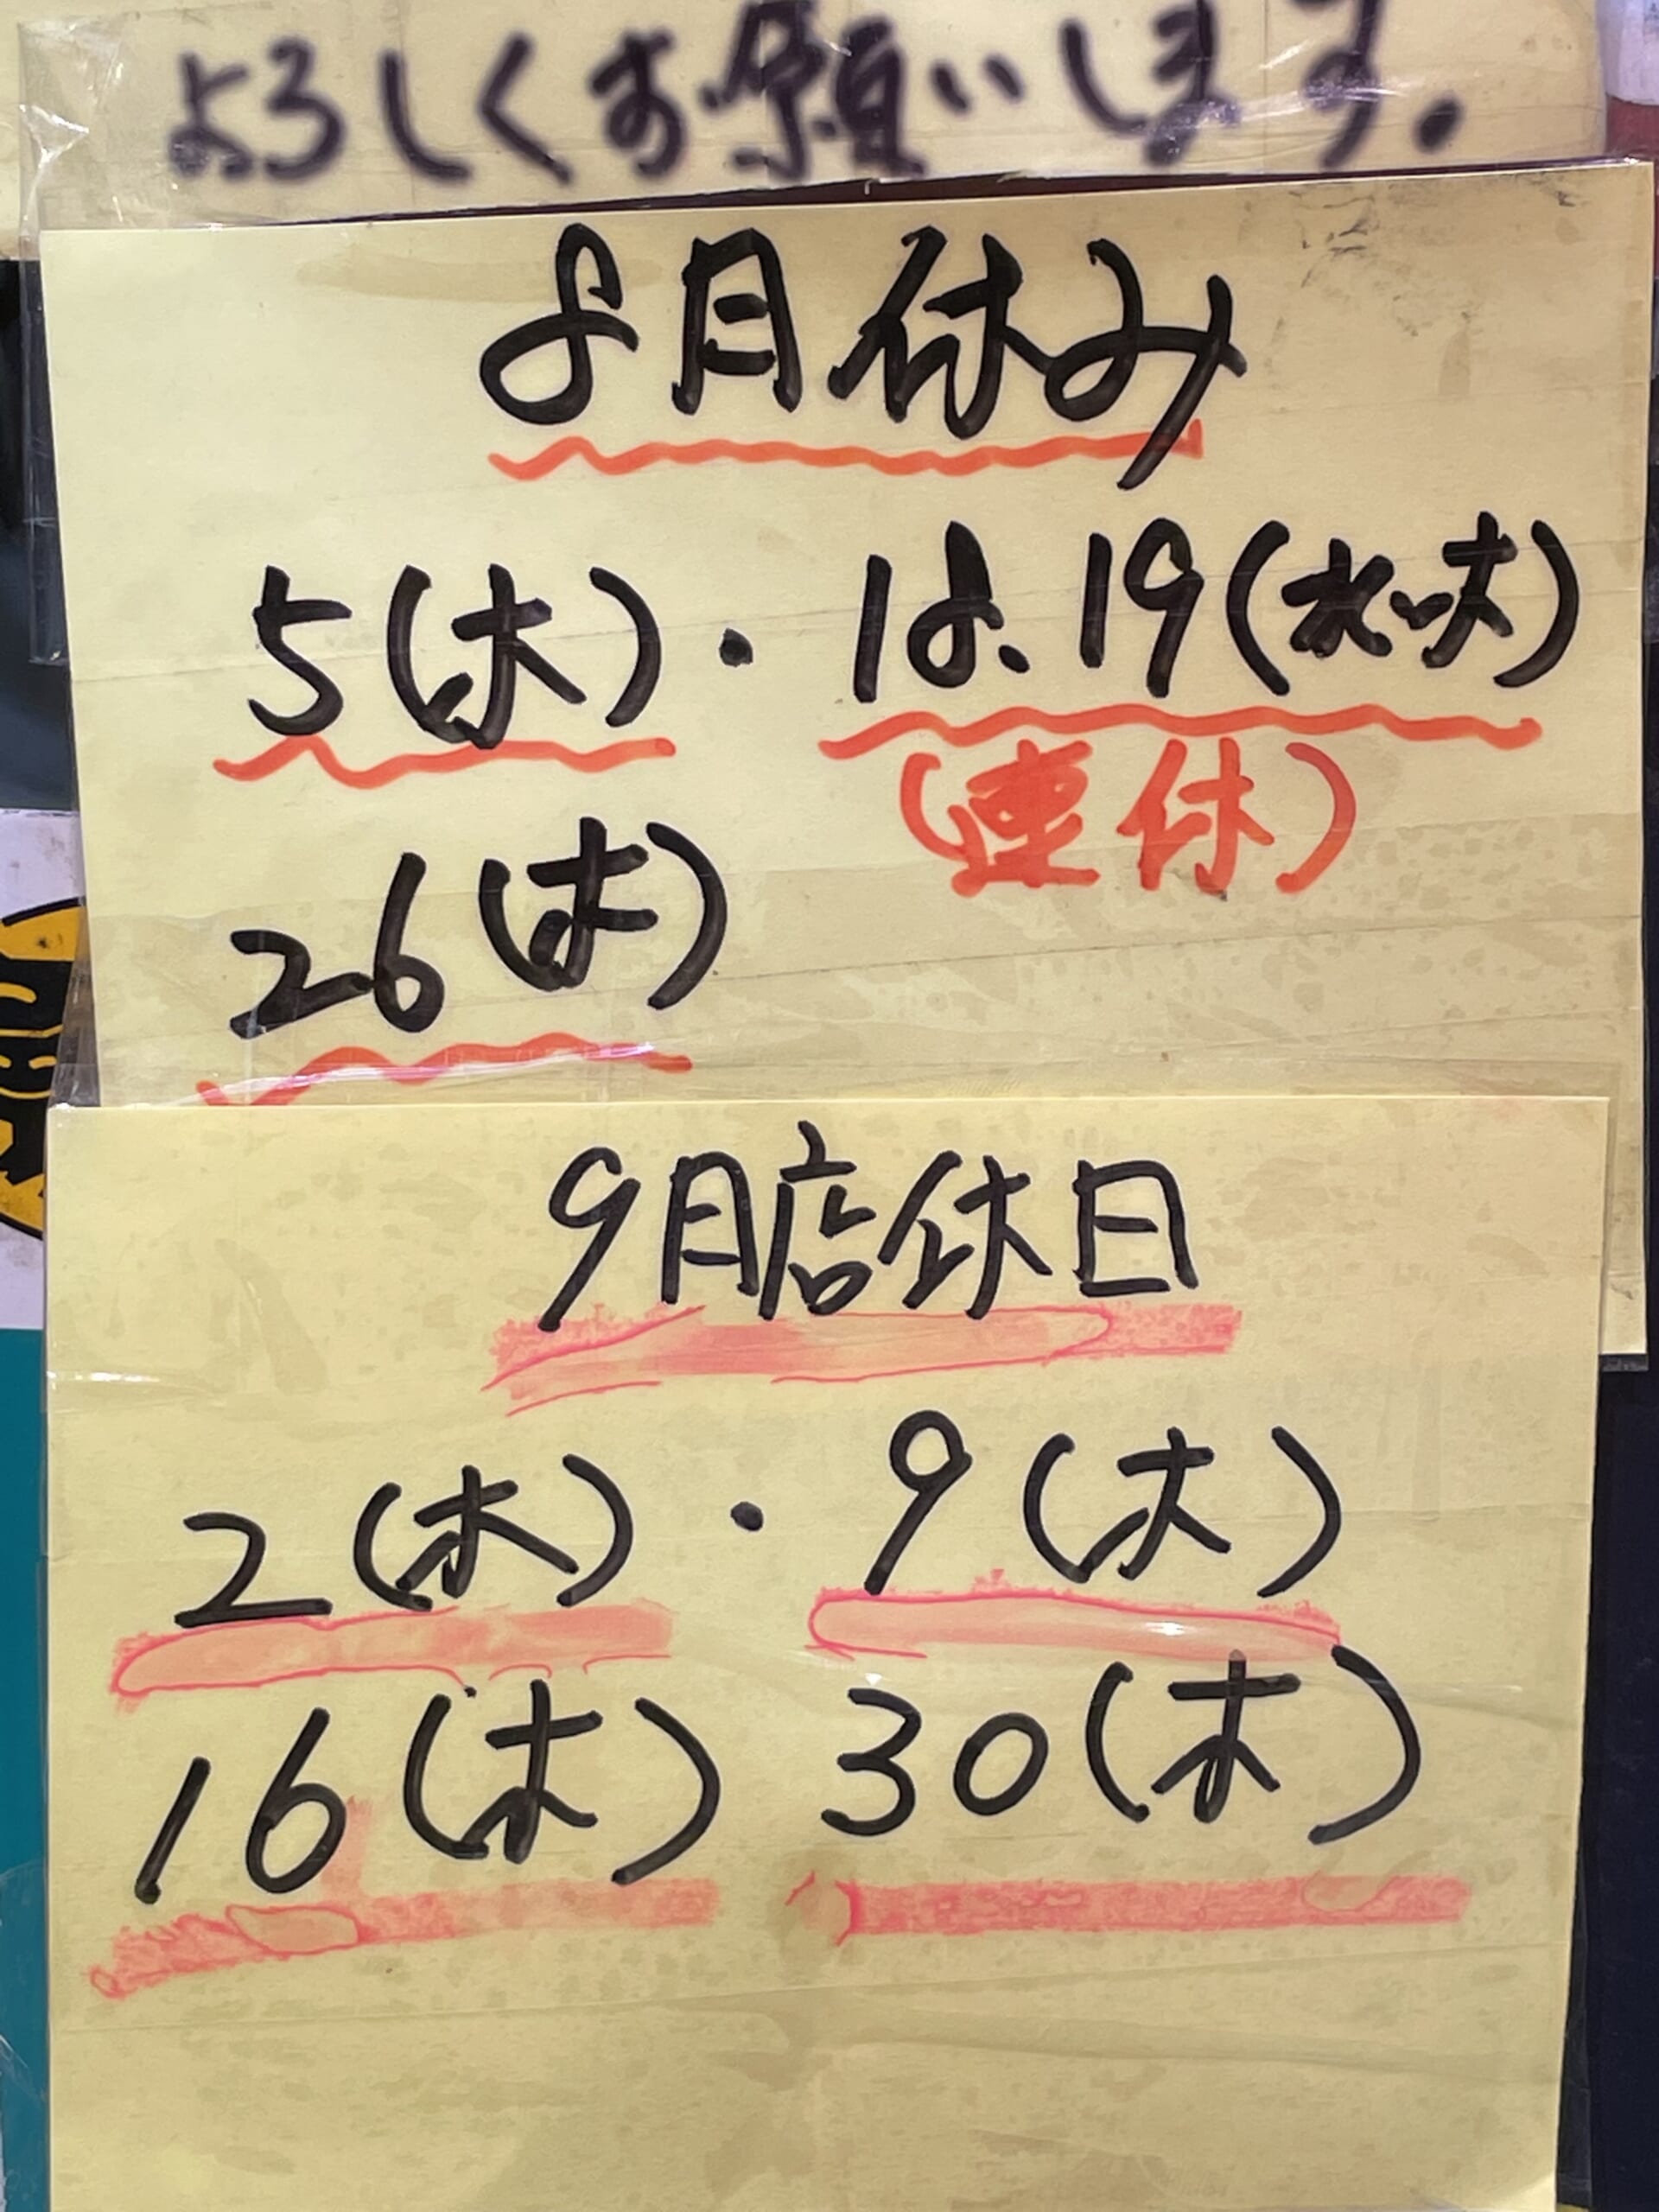 よろしくお願いします。
8月休み
5(木)・18.19(水・木)
(連休)
26(木)
9月店休日
2(木)・9(木)
16(木) 30(木)